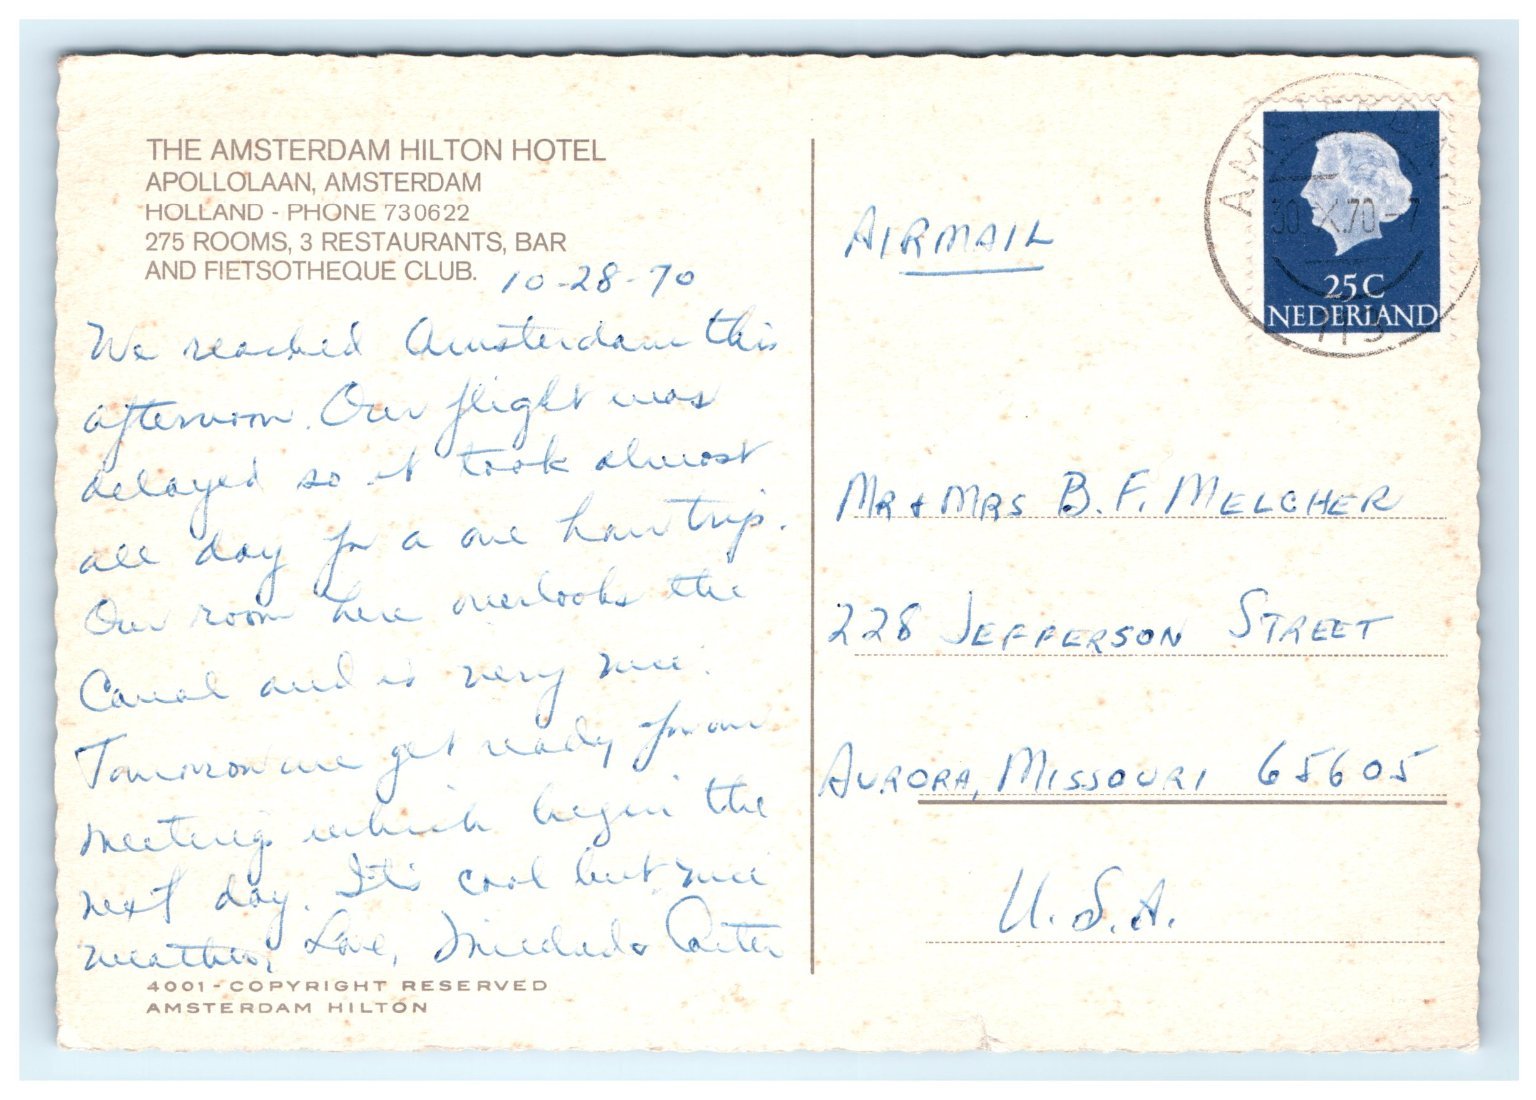 THE AMSTERDAM HILTON HOTEL
APOLLOLAAN, AMSTERDAM
HOLLAND - PHONE 730622
275 ROOMS, 3 RESTAURANTS, BAR
AND FIETSOTHEQUE CLUB.
10-28-70
We reached Amsterdam this
afternoon. Our flight was
delayed so it took almost
all day for a one hour trip.
Our room here overlooks the
Canal and is very nice.
Tomorrow we get ready for our
meeting which begin the
next day. It's cool but nice
weather, Love, & Carter
4001 - COPYRIGHT RESERVED
AMSTERDAM HILTON
AMSTERDAM
30.X.70-7
25C
NEDERLAND
AIRMAIL
MR + MRS B. F. MELCHER
228 JEFFERSON STREET
AURORA, MISSOURI 65605
U.S.A.